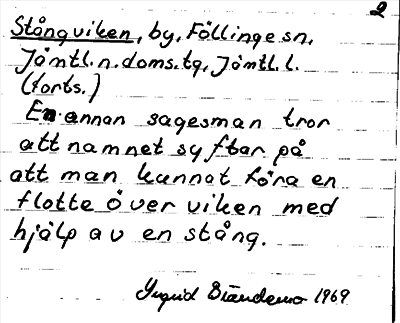 2
Stångviken, by, Föllinge sn,
Jämtl. n. doms. tg, Jämtl. l.
(forts.)
En annan sagesman tror
att namnet syftar på
att man kunnat föra en
flotte över viken med
hjälp av en stång.
Ingrid 1969